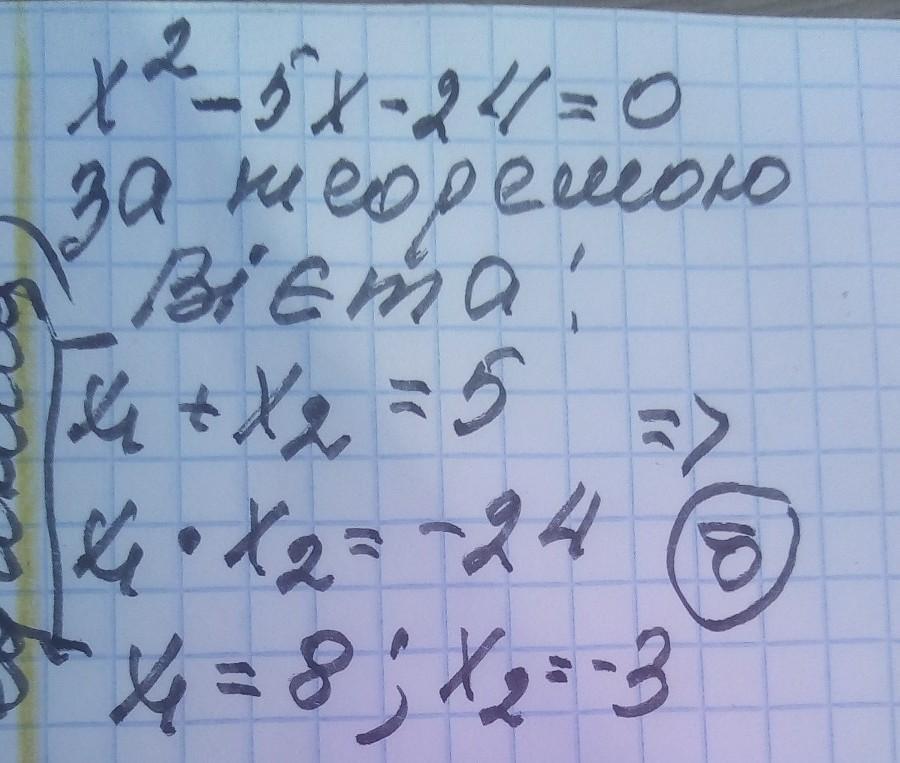 x² - 5x - 24 = 0
за теоремою
Вієта:
x₁ + x₂ = 5
=>
x₁ · x₂ = -24
x₁ = 8; x₂ = -3